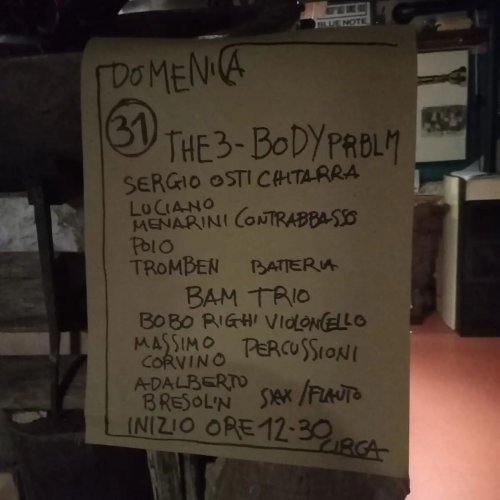 BLUE NOTE
DOMENICA
31
THE 3-BODY PRBLM
SERGIO OSTI CHITARRA
LUCIANO
MENARINI CONTRABBASSO
POLO
TROMBEN BATTERIA
BAM TRIO
BOBO RIGHI VIOLONCELLO
MASSIMO
CORVINO PERCUSSIONI
ADALBERTO
BRESOLIN SAX/FLAUTO
INIZIO ORE 12-30
CIRCA